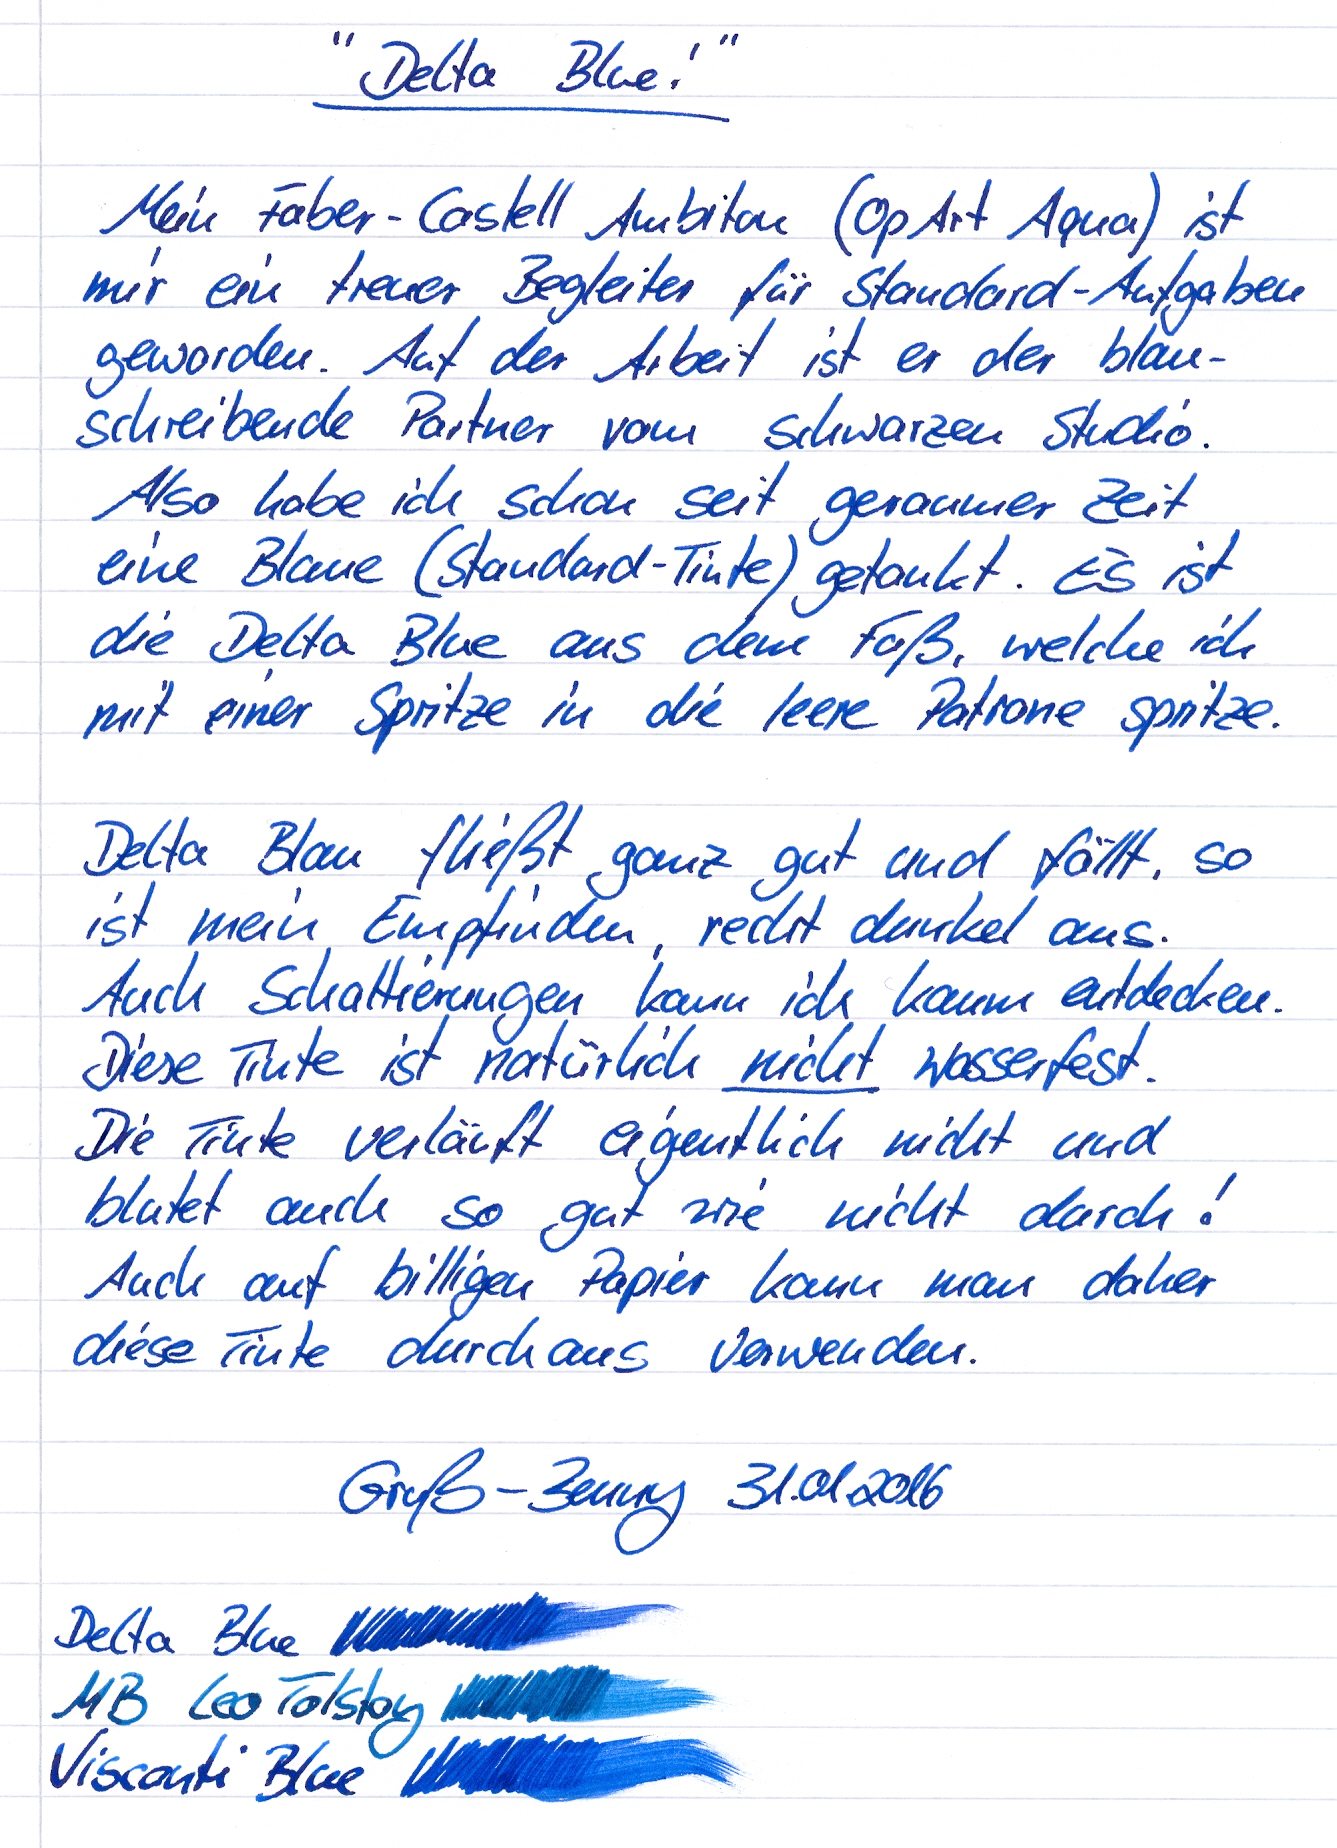 "Delta Blue!"
Mein Faber-Castell Ambiton (OpArt Aqua) ist
mir ein treuer Begleiter für Standard-Aufgaben
geworden. Auf der Arbeit ist er der blau-
schreibende Partner vom schwarzen Studio.
Also habe ich schon seit geraumer Zeit
eine Blaue (Standard-Tinte) getankt. Es ist
die Delta Blue aus dem Faß, welche ich
mit einer Spritze in die leere Patrone spritze.
Delta Blau fließt ganz gut und fällt, so
ist mein Empfinden, recht dunkel aus.
Auch Schattierungen kann ich kaum entdecken.
Diese Tinte ist natürlich nicht wasserfest.
Die Tinte verläuft eigentlich nicht und
blutet auch so gut wie nicht durch!
Auch auf billigen Papier kann man daher
diese Tinte durchaus verwenden.
Gruß-Benny 31.01.2016
Delta Blue
MB Leo Tolstoy
Visconti Blue